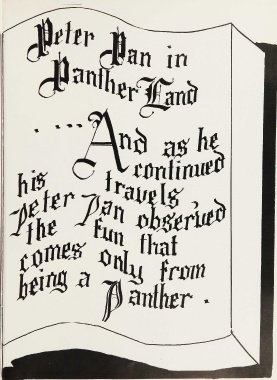 Peter Pan in
Panther Land
....And as he
continued
his travels,
Peter Pan observ'd
the fun that
comes only from
being a Panther.